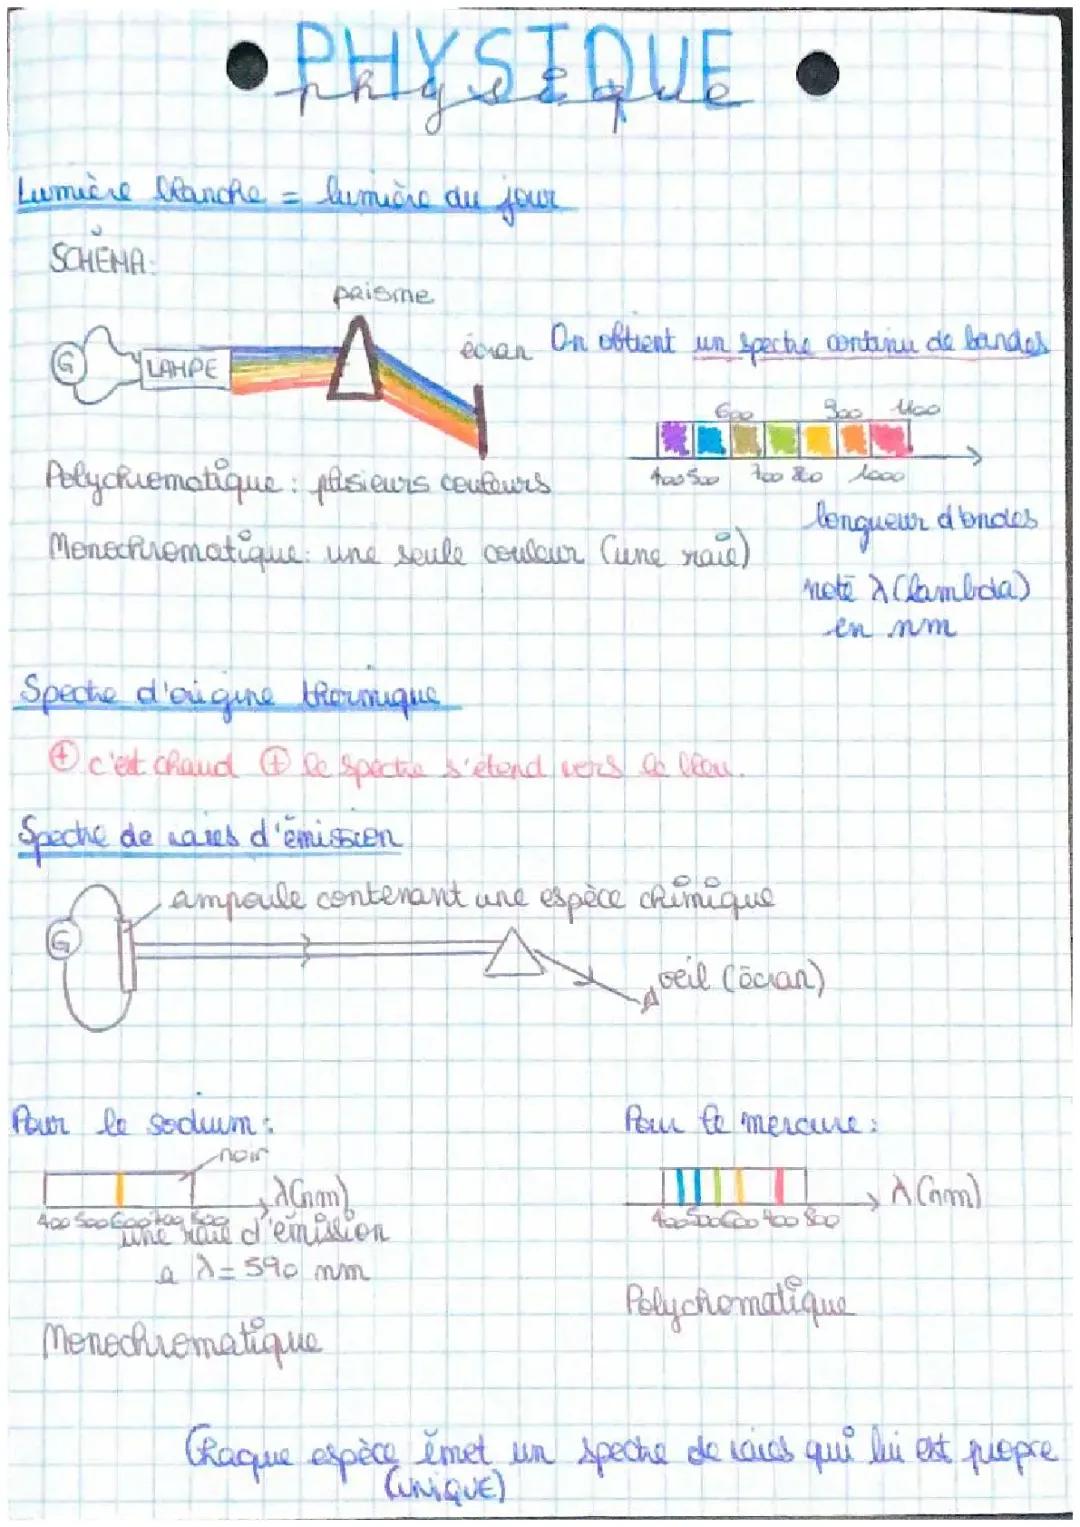 PHYSIQUE
physique
Lumière blanche = lumière du jour
SCHÉMA:
prisme
écran
On obtient un spectre continu de bandes
G
LAMPE
600 900 1100
400 500 700 800 1000
Polychromatique : plusieurs couleurs
longueur d'ondes
Monochromatique: une seule couleur (une raie)
noté λ (lambda)
en nm
Spectre d'origine thermique
+ c'est chaud + le spectre s'étend vers le bleu.
Spectre de raies d'émission
ampoule contenant une espèce chimique
G
oeil (écran)
Pour le sodium :
Pour le mercure :
noir
λ(nm)
λ (nm)
400 500 600 700 800
400 500 600 700 800
une raie d'émission
a λ = 590 nm
Polychomatique
Monochromatique
Chaque espèce émet un spectre de raies qui lui est propre
(UNIQUE)